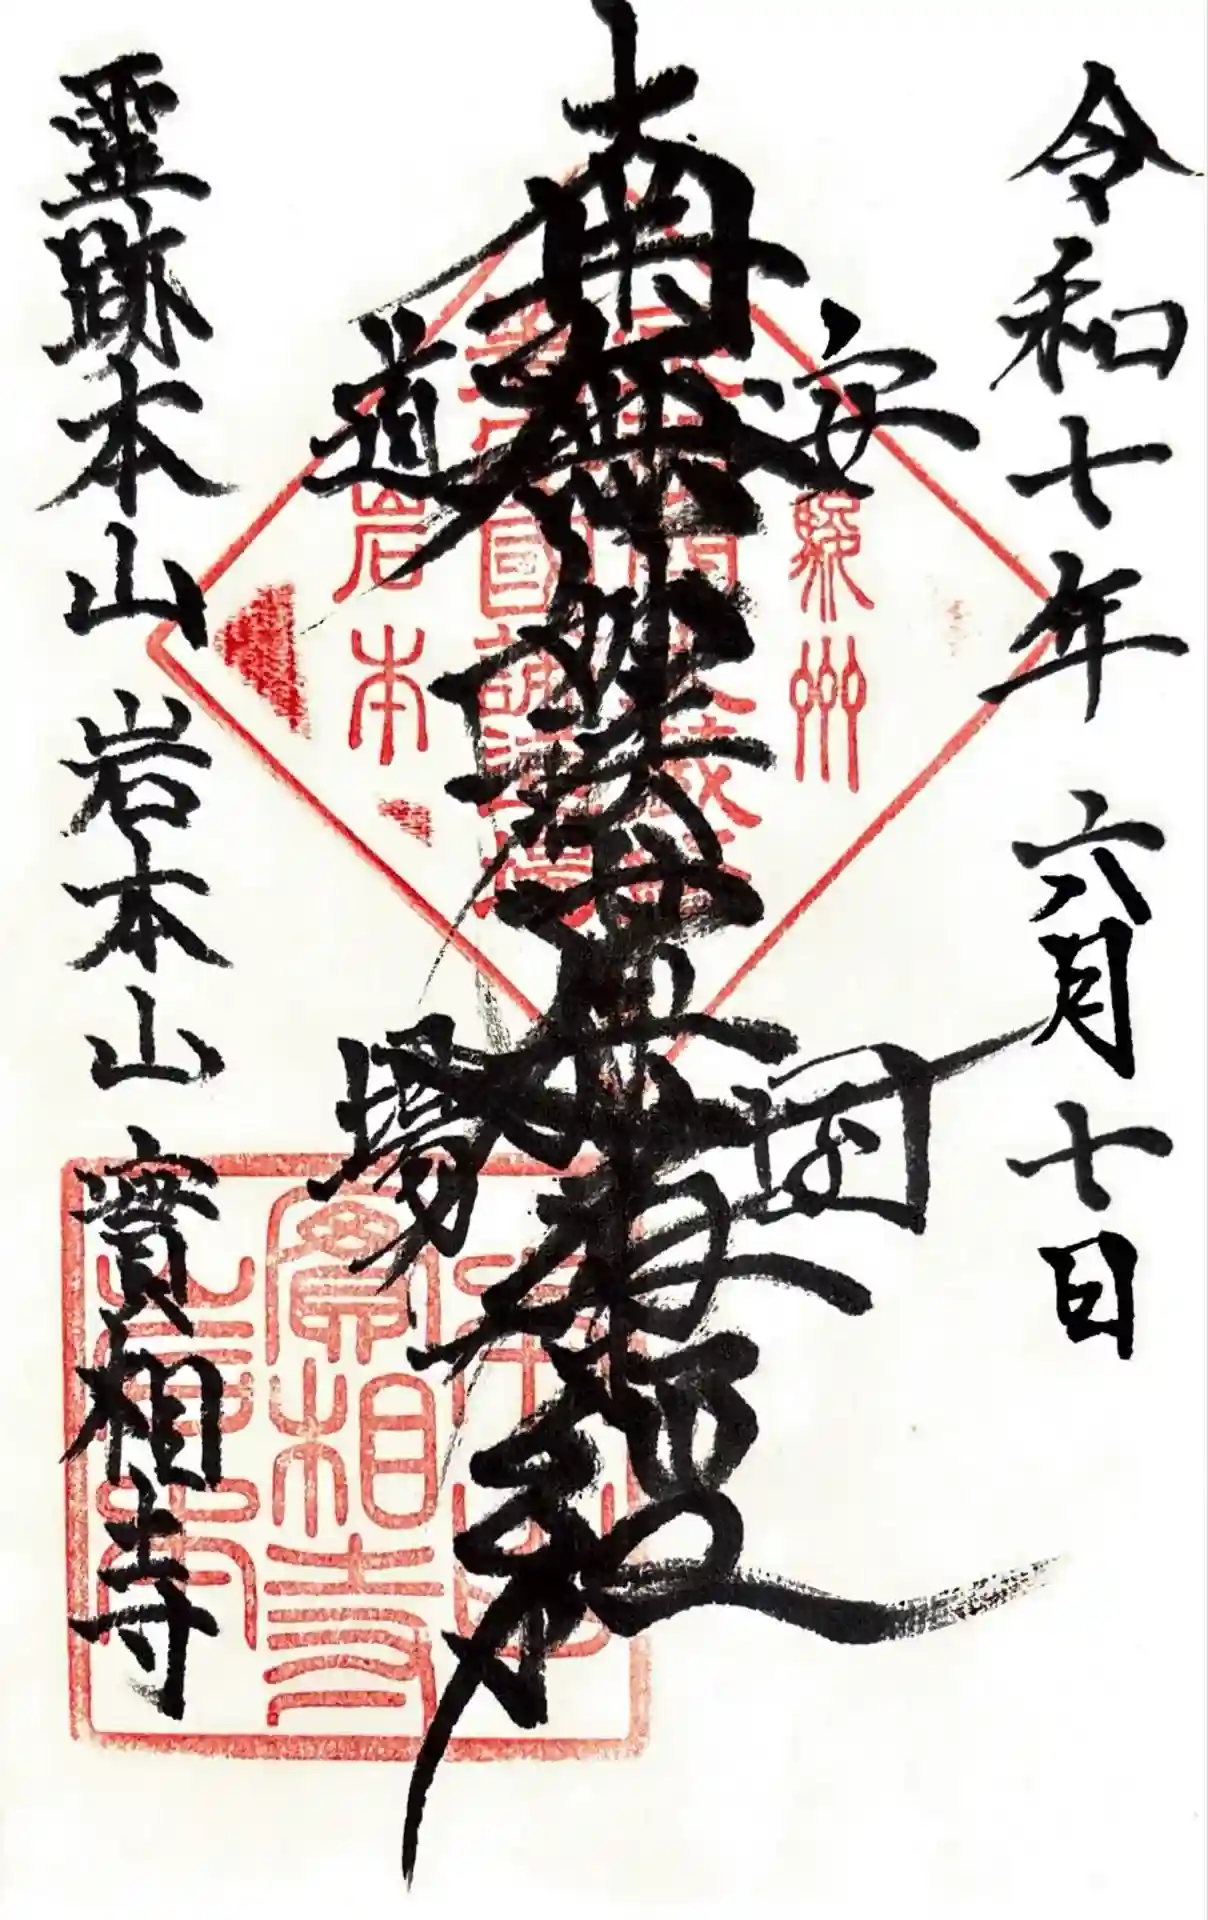 令和七年 六月七日
安国
南無妙法蓮華経
道場
霊跡本山 岩本山 實相寺
駿州
岩本
實相寺